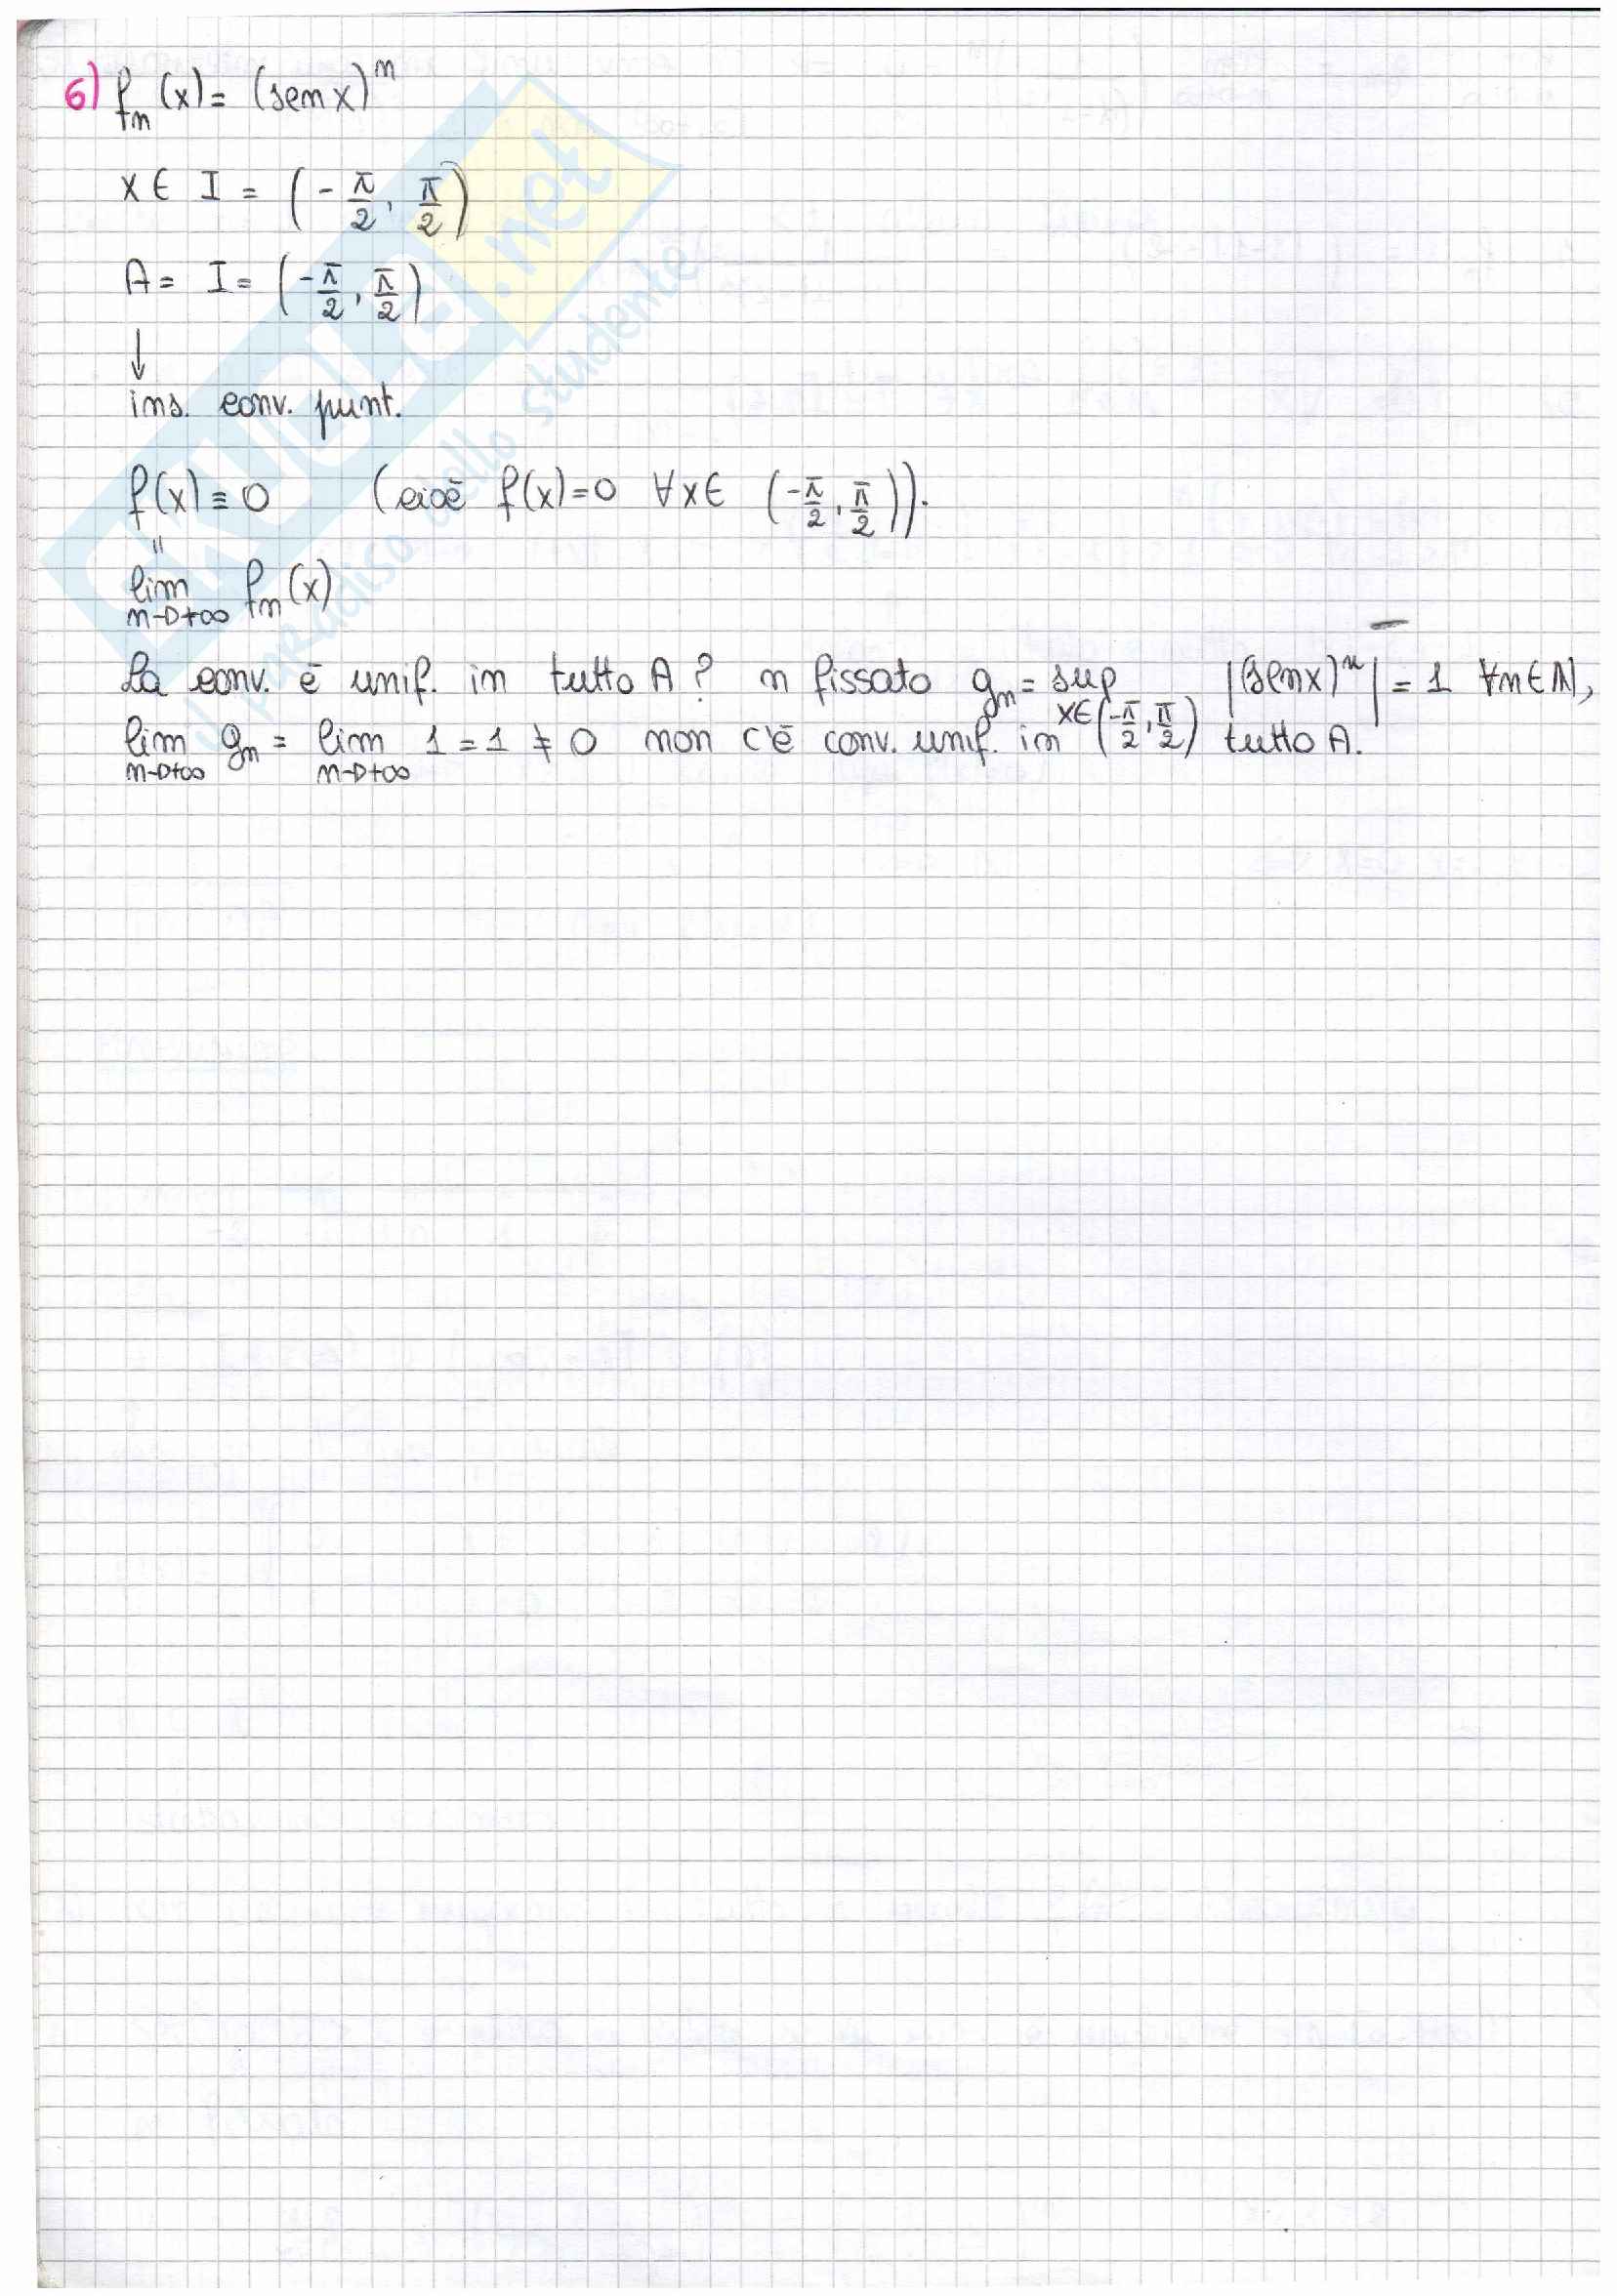 6) fₙ(x) = (sen x)ⁿ
x ∈ I = (-π/2, π/2)
A = I = (-π/2, π/2)
↓
ins. conv. punt.
f(x) ≡ 0 (cioè f(x)=0 ∀x∈ (-π/2, π/2)).
"
lim n→+∞ fₙ(x)
La conv. è unif. in tutto A? n fissato gₙ = sup x∈(-π/2, π/2) |(sen x)ⁿ| = 1 ∀n∈ℕ,
lim n→+∞ gₙ = lim n→+∞ 1 = 1 ≠ 0 non c'è conv. unif. in tutto A.
SKUOLA.net
il paradiso dello studente